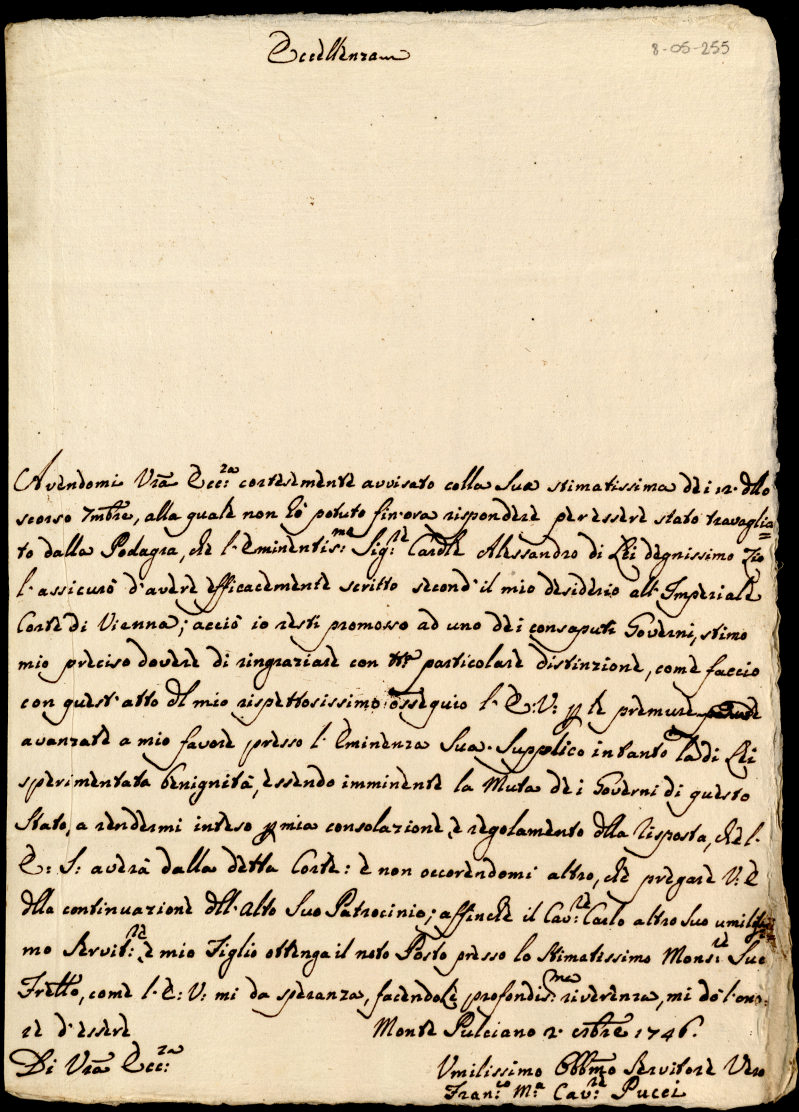 Eccellenza
8-05-255
Avendomi Vrã Ecc:za cortesemente avvisato colla Sua stimatissima dei 12. dello
scorso 7mbre, alla quale non hò potuto fin'ora rispondere per essere stato travaglia=
to dalla Podagra, che l'Eminentis:mo Sig:re Cardle Alessandro di Lei degnissimo Zio
l'assicurò d'avere efficacemente scritto second'il mio desiderio all'Imperiale
Corte di Vienna; acciò io resti promosso ad uno dei consaputi Governi, stimo
mio preciso dovere di ringraziare con particolare distinzione, come faccio
con quest'atto del mio rispettosissimo osseguio l'E:V: p le premure
avanzate a mio favore presso l'Eminenza Sua. Supplico intanto la di Lei
sperimentata benignità, essendo imminente la Muta dei Governi di questo
Stato, a rendermi inteso p mia consolazione, e regolamento della risposta, che l'
E: S: averà dalla detta Corte: e non occorendomi altro, che pregare V: E
della continuazione dell'alto Suo Patrocinio; affinchè il Cav:re Carlo altro Suo umilissi=
mo Servit:re e mio Figlio ottenga il noto Posto presso lo Stimatissimo Mons:re Suo
Frello, come l'E: V: mi da speranza, facendole profondis:ma riverenza, mi dò l'ono=
re d'essere Monte Pulciano 2. 1746.
Di Vrã Ecc:za
Umilissimo Obbmo Servitore Vero
Fran:co M:a Cav:re Pucci